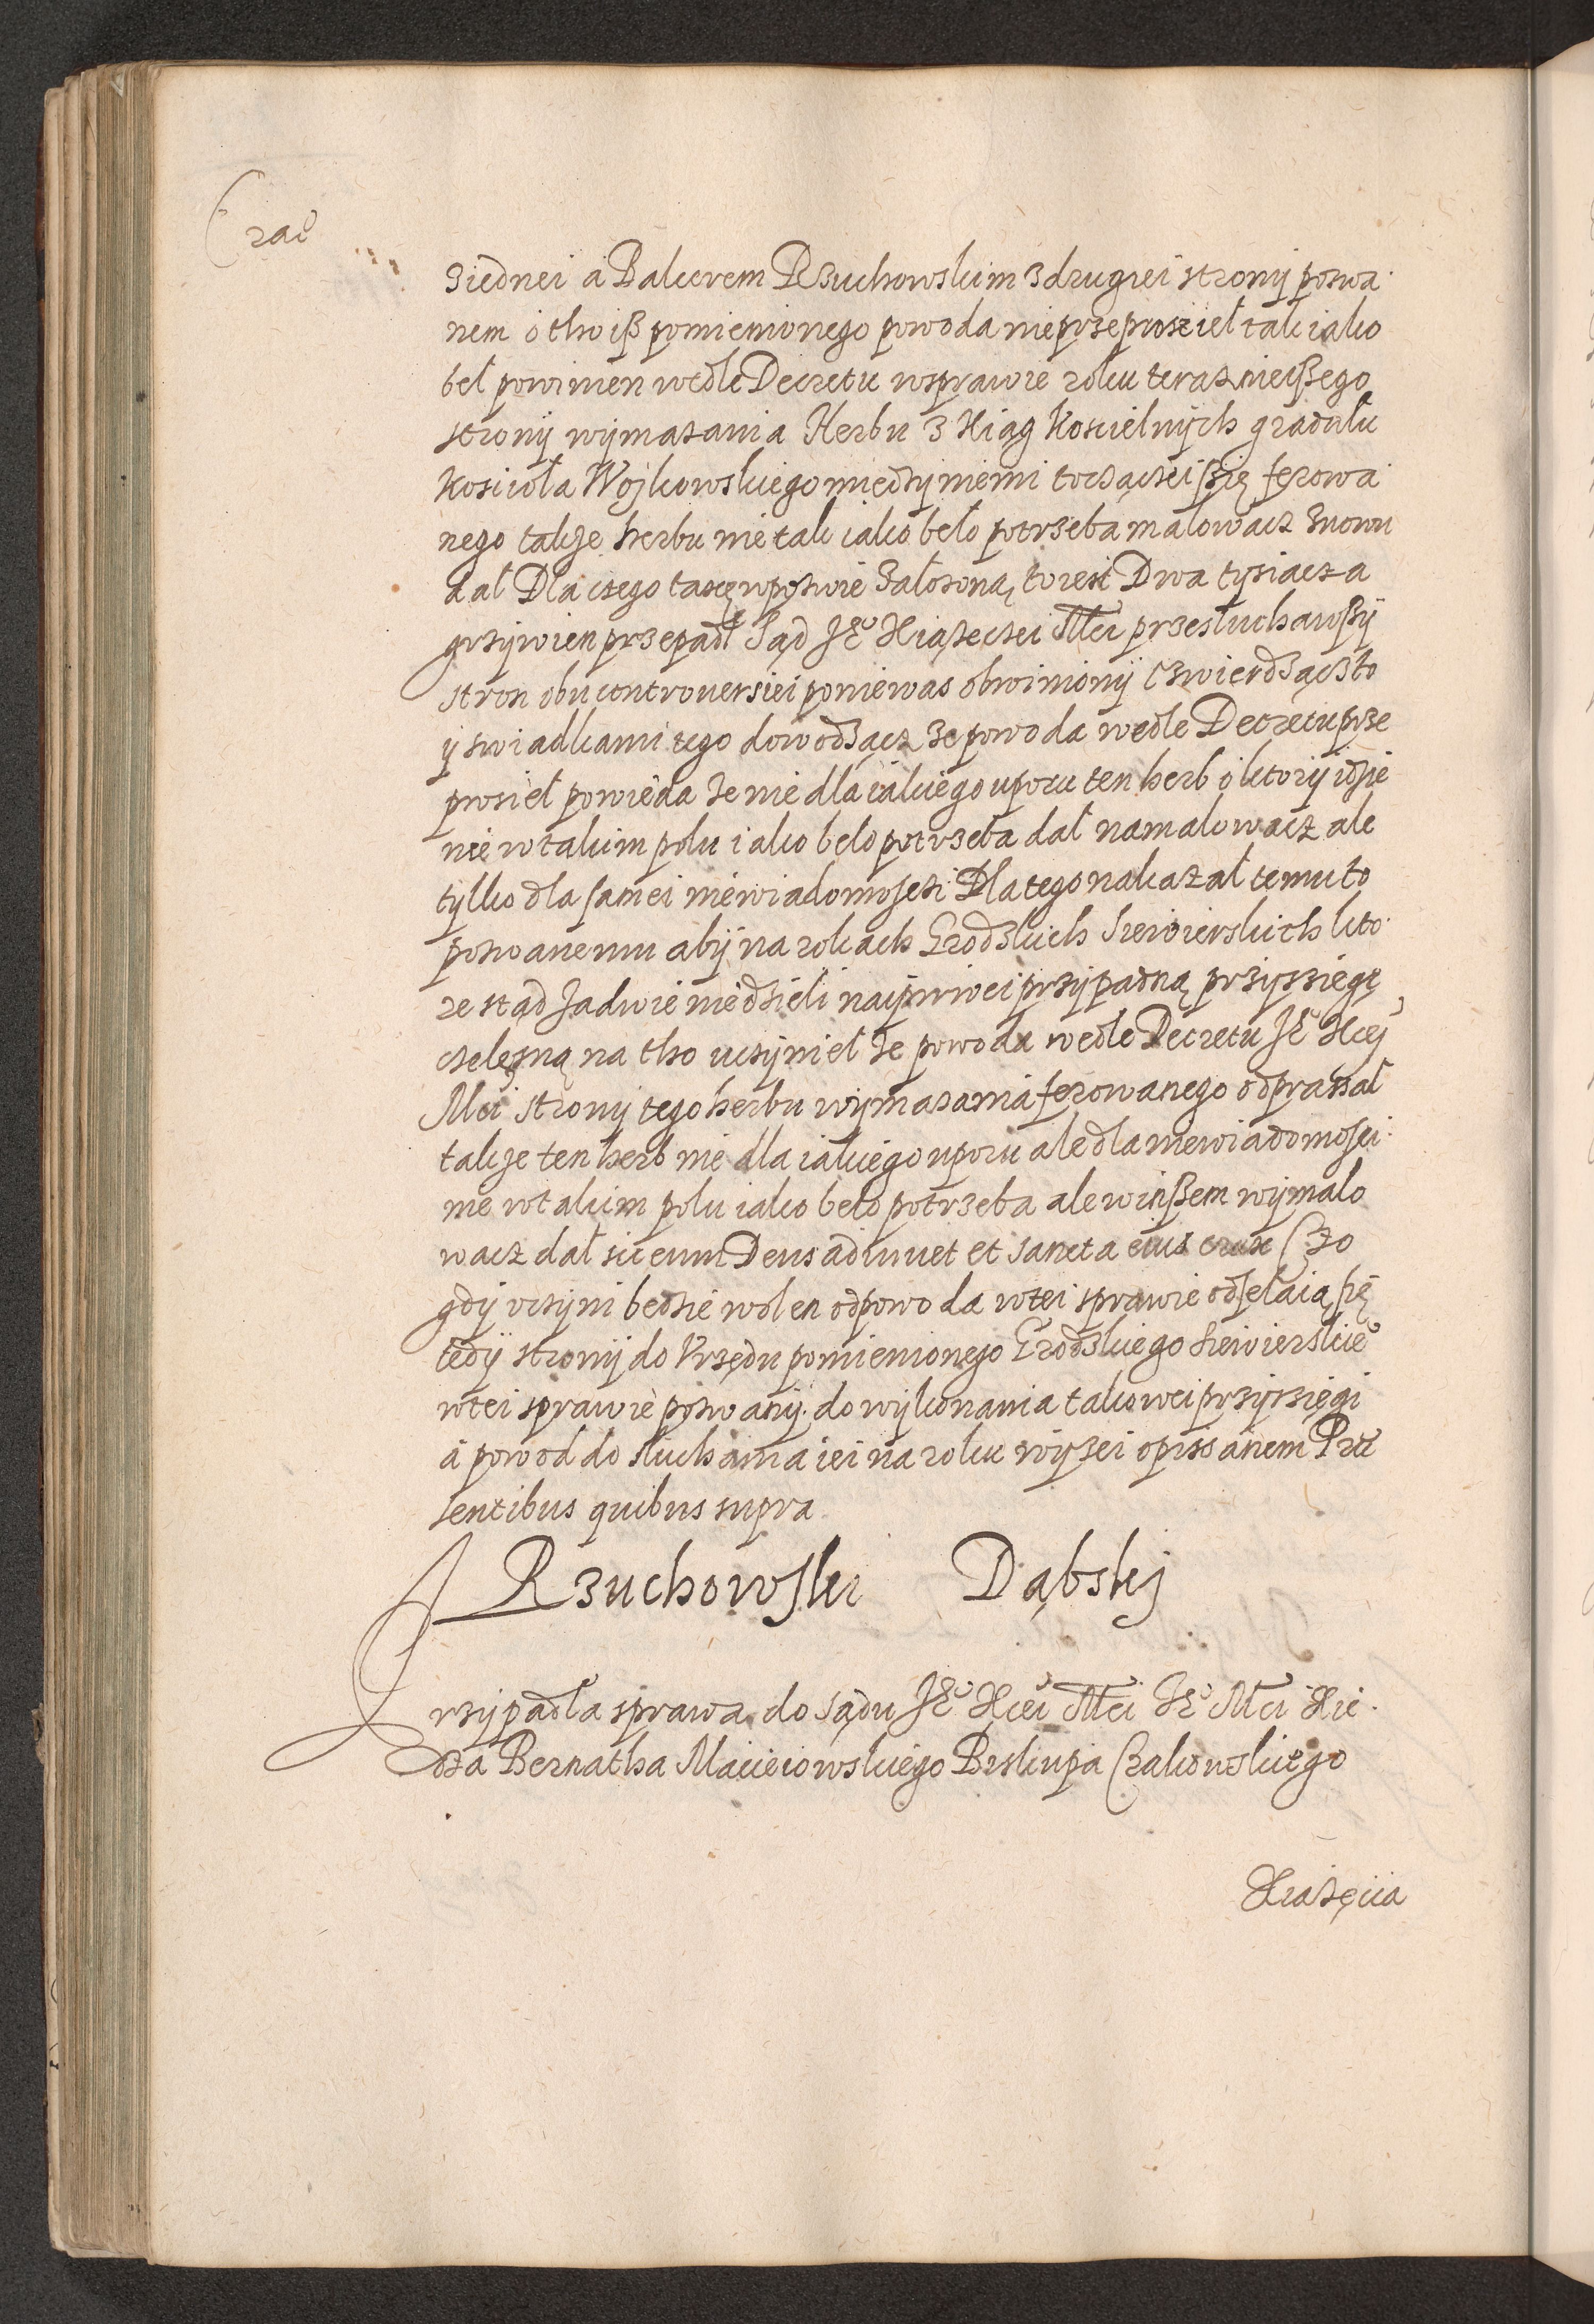 ziednei a Balcerem Rzuchowskim z drugiei strony pozwa
nem o tho iß pomienionego powoda nieprzeprosieł tak iako
beł powinien wedle Decretu wsprawie roku terazneißego
strony wymazania Herbu z Xiąg Koscielnych graduału
Kosicoła Wojkowskiego miedzy niemi toczączei ßię ferowa
nego takze herbu nie tak iako beło potrzeba malowacz znowu
dał Dla czego taxę wpozwie załozoną, to iest Dwa tysiacza
grzywien przepadł Sąd Je° Xiązeczei Mci przesłuchawßy
stron obu controuersiei poniewas obwiniony Czwierdsącz to
y swiadkami tego dowodsącz ze powoda wedle Decretu prze
prosieł powieda ze nie dla iakiego uporu ten herb o ktory idzie
nie wtakim polu iako beło potrzeba dał namalowacz ale
tylko dla samei niewiadomosczi Dlatego nakazał temu to
pozwanemu aby na rokach Grodskich Siewierskich kto
re stąd za dwie niedzieli naipirwei przypadną przyssięgę
czelesną na tho uczynieł ze powoda wedle Decretu Je° Xcej
Mci strony tego herbu wymazania ferowanego odpraszał
takze ten herb nie dla iakiego uporu ale dla niewiadomosci
nie wtakim polu iako beło potrzeba ale winßem wymalo
wacz dał sic eum Deus adiuuet et sancta eius crux Czo
gdy vczyni bedzie wolen odpowoda wtei sprawie odsełaią się
tedy strony do Vrzędu pomienionego Grodskiego Siewierskie°
wtei sprawie pozwany do wykonania takowei przysięgi
a powod do słuchania iei na roku wyzei opissanem Præ
sentibus quibus supra
Rzuchowski Dąbskj
Przypadła sprawa do Sądu Je° Xcei Mci Je° Mci Xie
dza Bernatha Macieiowskiego Biskupa Crakowskiego
Xiazęcia